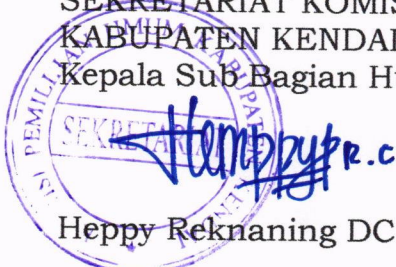 SEKRETARIAT KOMIS
KABUPATEN KENDAL
Kepala Sub Bagian H
SEKRETARIAT
Heppy Reknaning DC